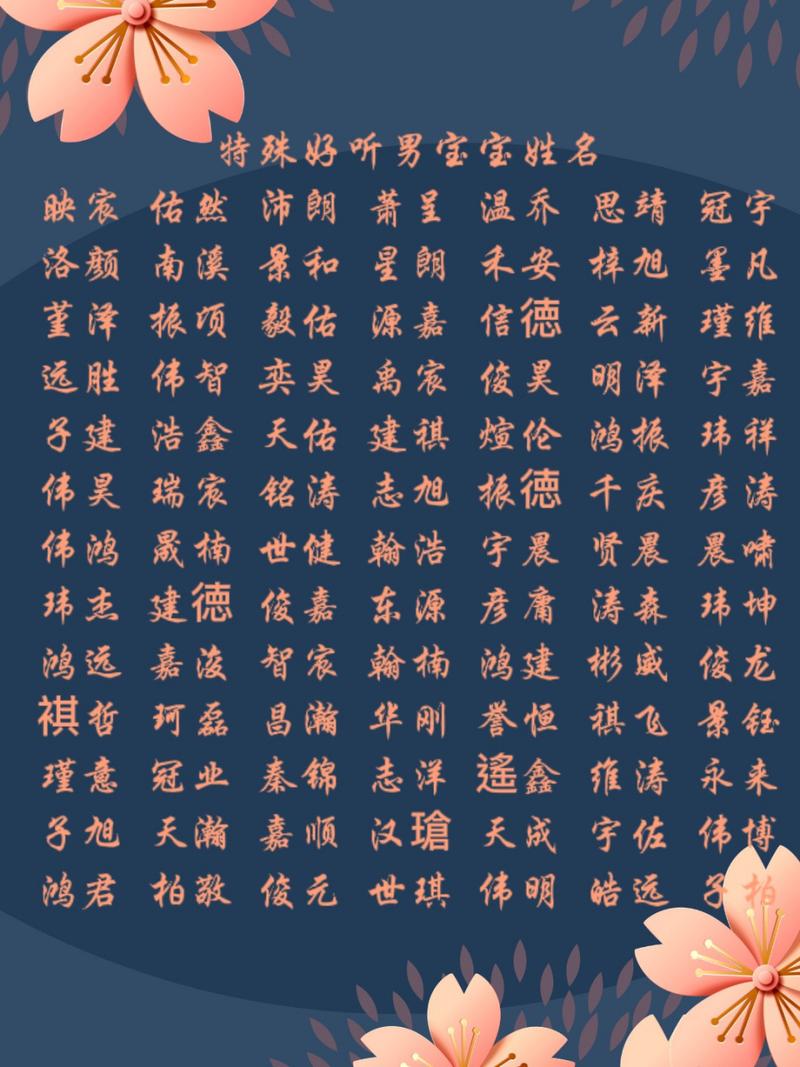 特殊好听男宝宝姓名
映宸 佑然 沛朗 萧呈 温乔 思靖 冠宇
洛颜 南溪 景和 星朗 禾安 梓旭 墨凡
堇泽 振项 毅佑 源嘉 信德 云新 瑾维
远胜 伟智 奕昊 禹宸 俊昊 明泽 宇嘉
子建 浩鑫 天佑 建祺 煊伦 鸿振 玮祥
伟昊 瑞宸 铭涛 志旭 振德 千庆 彦涛
伟鸿 晟楠 世健 翰浩 宇晨 贤晨 晨啸
玮杰 建德 俊嘉 东源 彦庸 涛森 玮坤
鸿远 嘉浚 智宸 翰楠 鸿建 彬威 俊龙
褀哲 珂磊 昌瀚 华刚 誉恒 祺飞 景钰
瑾意 冠业 秦锦 志洋 遙鑫 维涛 永来
子旭 天瀚 嘉顺 汉瑲 天成 宇佐 伟博
鸿君 柏敬 俊元 世琪 伟明 皓远 子柏